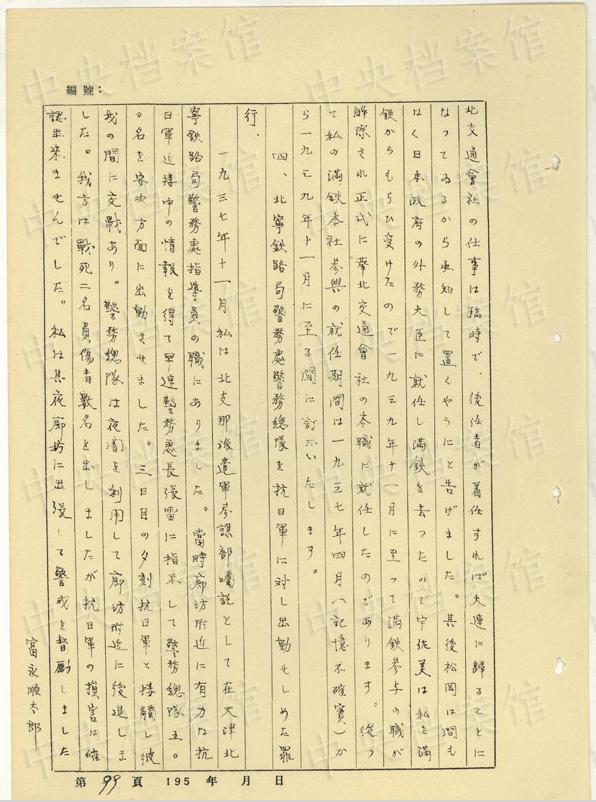 編號：
北支交通會社の仕事は臨時で、後任者が着任すれば大連に歸ることに
なってゐるから承知して置くやうにと告げました。其後松岡は間も
なく日本政府の外務大臣に就任し満鉄を去ったので宇佐美は私を満
鉄からもらひ受けたので一九三九年十一月に至って満鉄参与の職が
解除され正式に華北交通會社の本職に就任したのであります。従っ
て私の満鉄本社参與の就任期間は一九三七年四月（記憶不確實）か
ら一九三九年十一月に至る間に訂正いたします。
四、北寧鉄路局警務處警務總隊を抗日軍に対し出動せしめた罪
行、
一九三七年十一月私は北支那派遣軍参謀部嘱託として在天津北
寧鉄路局警務處指導員の職にありました。當時廊坊附近に有力な抗
日軍近接中の情報を得て早速警務處長張雷に指示して警務總隊五〇
〇名を安次方面に出動させました。三日目の夕刻抗日軍と接觸し彼
我の間に交戰あり。警務總隊は夜闇を利用して廊坊附近に後退しま
した。我方は戰死二名負傷者数名を出しましたが抗日軍の損害は確
認出来ませんでした。私は其夜廊坊に出張して警戒を督励しました
富永順太郎
第99頁 195 年 月 日
中央档案馆